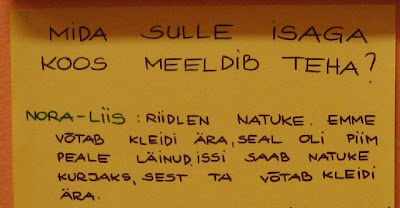 MIDA SULLE ISAGA
KOOS MEELDIB TEHA?
NORA-LIIS : RIIDLEN NATUKE. EMME
VÕTAB KLEIDI ÄRA, SEAL OLI PIIM
PEALE LÄINUD. ISSI SAAB NATUKE
KURJAKS, SEST TA VÕTAB KLEIDI
ÄRA.